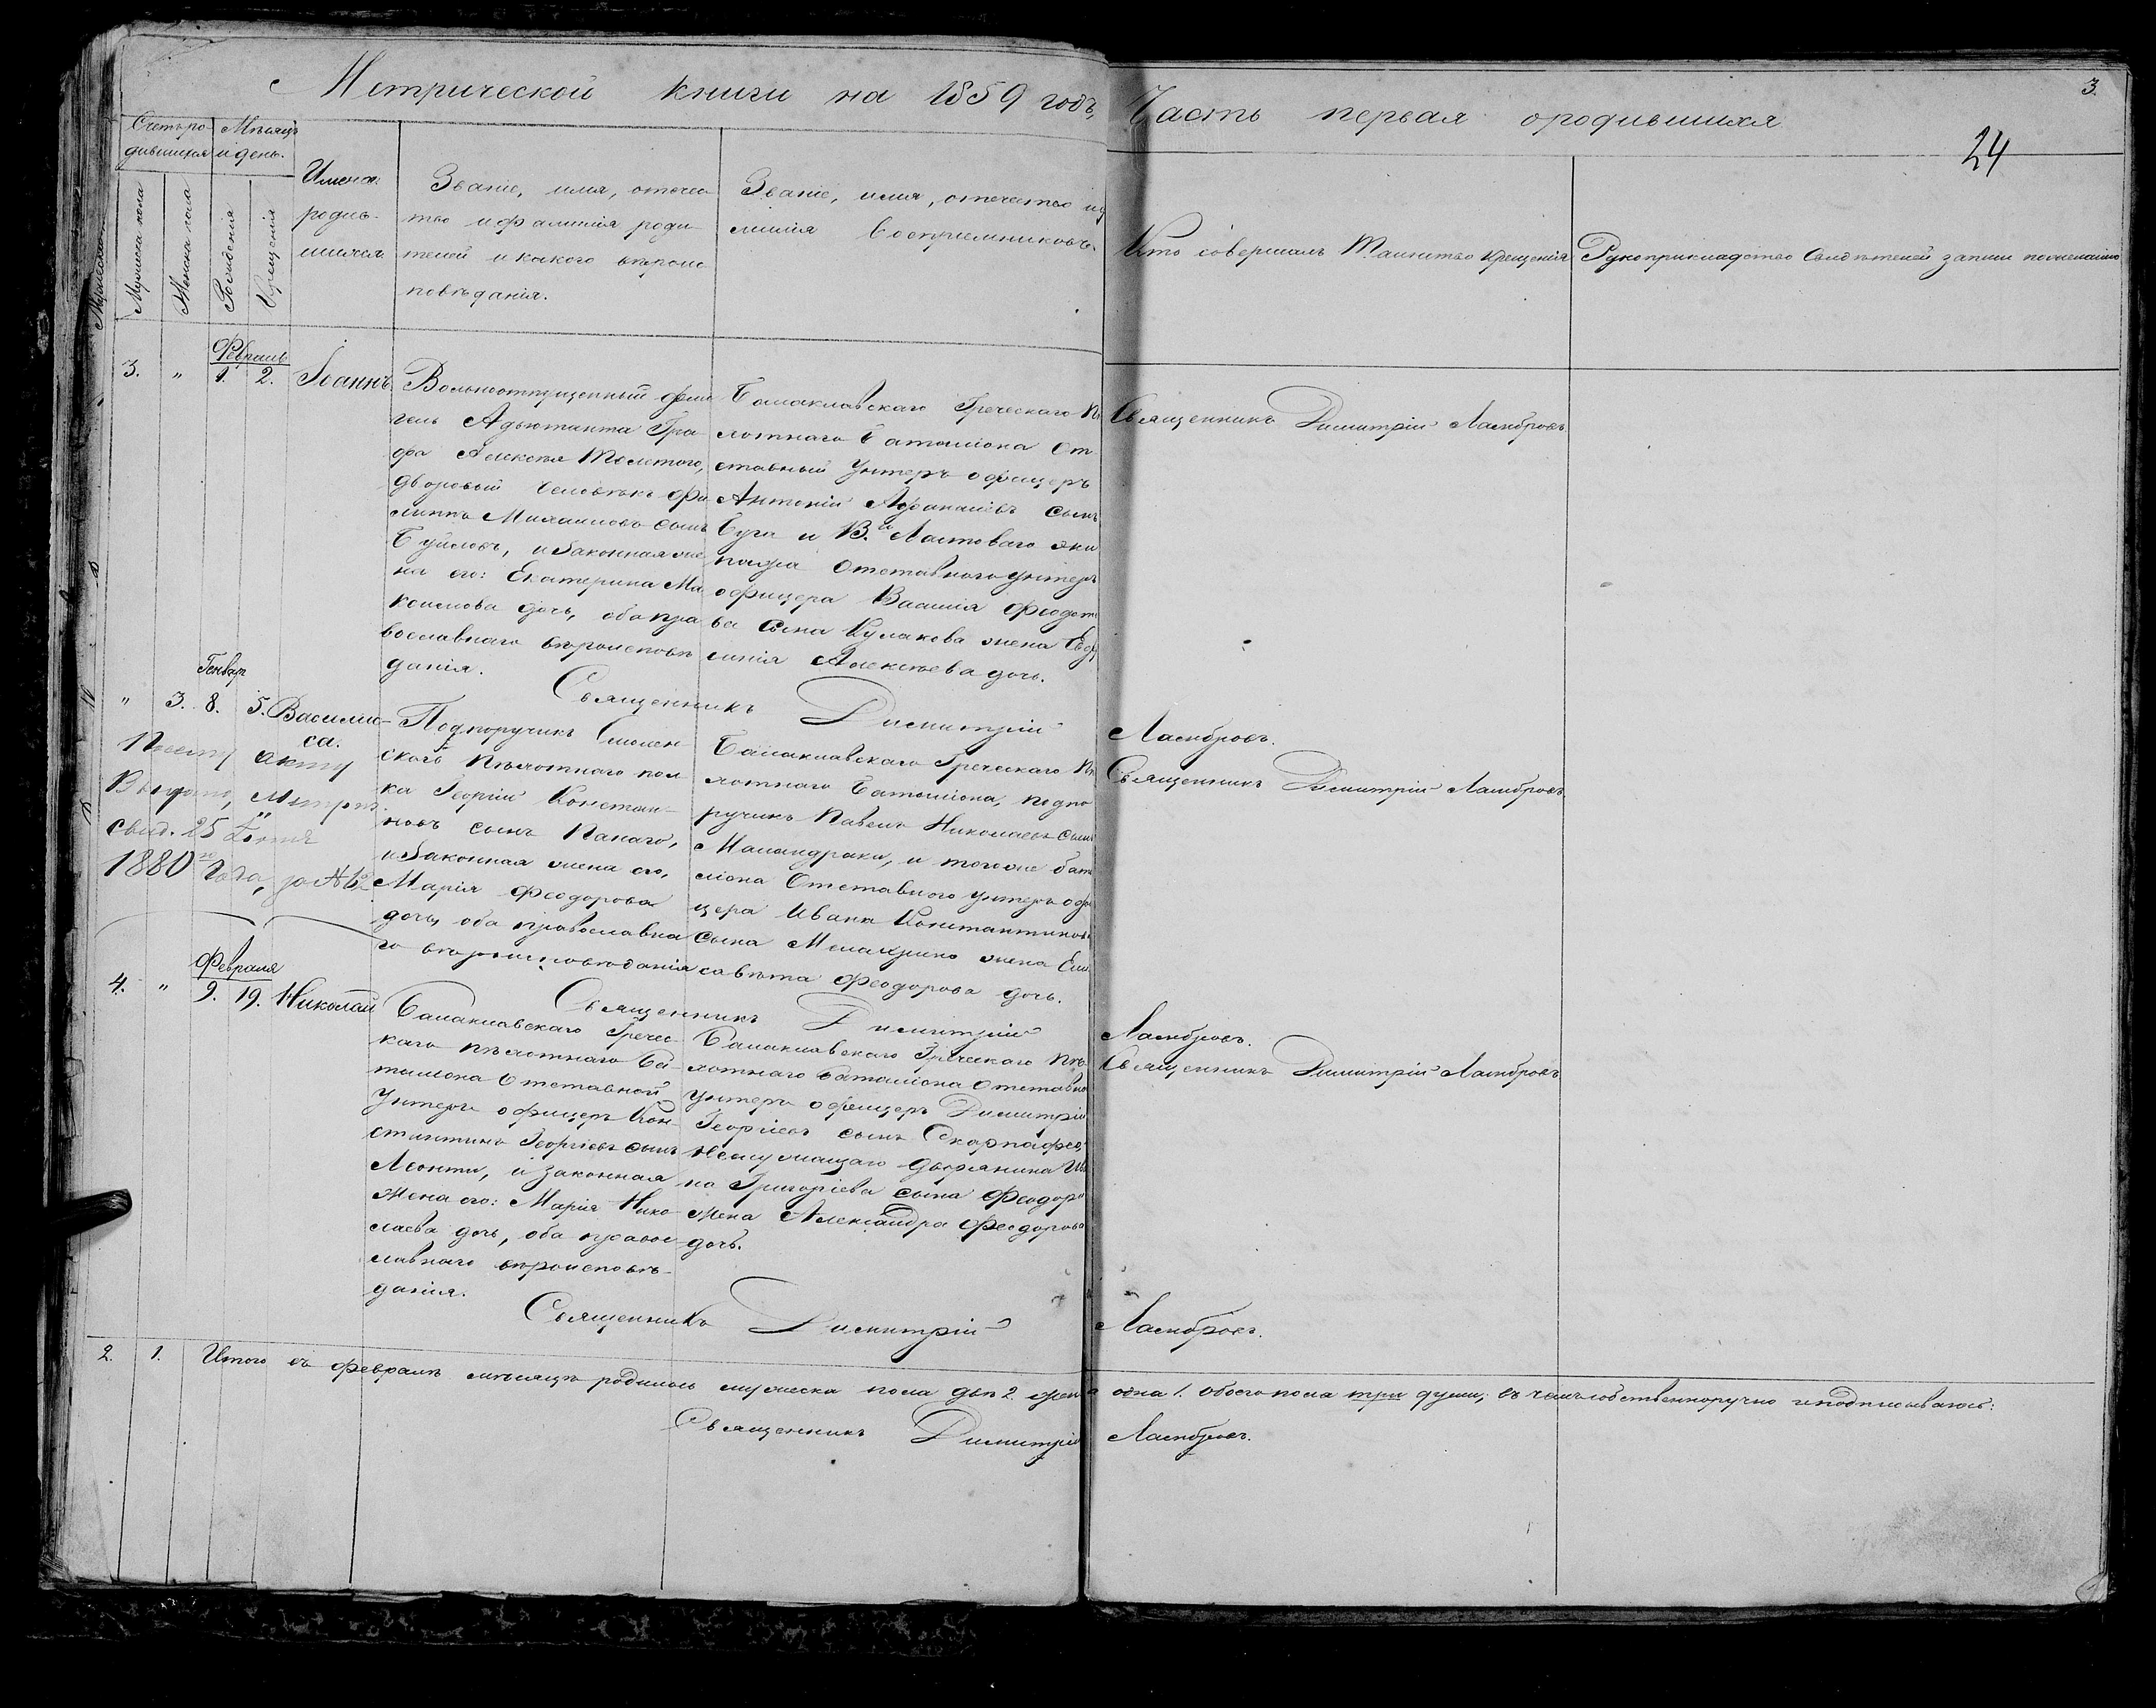 Метрической книги на 1859 годъ,
Часть первая о родившихся
3.
24
Счетъ ро-
дившихся
Мѣсяцъ
и день.
Мужеска пола
Женска пола
Рожденія
Крещенія
Имена
родив-
шихся
Званіе, имя, отечес-
тво и фамилія роди-
телей и какого вѣроис
повѣданія.
Званіе, имя, отечество и ф
милія воспріемниковъ
Кто совершалъ Таинство крещенія
Рукоприкладство свидѣтелей записи по желанію
Февраль
3. " 1. 2. Іоаннъ
Вольноотпущенный фли
гель Адъютанта Гра-
фа Алексѣя Толстого,
дворовый человѣкъ Фи
липпъ Михаиловъ сынъ
Буйловъ, и законная же
на его: Екатерина Ма
ксимова дочь, оба пра
вославнаго вѣроисповѣ
данія.
Балаклавскаго Греческаго Пѣ
хотнаго Баталіона От
ставный Унтеръ офицеръ
Антоній Афанасіевъ сынъ
и Ластоваго эки
пажа Отставного унтеръ
офицера Василія Феодоть
ева сына Кулакова жена Евд
Алексѣева дочь.
Священникъ Димитрій Ламбровъ.
Священникъ Димитрій Ламбровъ.
Генваря
" 3. 8. 5. Василис-
са.
По сему акту
Выдано, Метрич.
свид. 25
1880 го года, за №
Подпоручикъ Смолен-
скаго Пѣхотнаго пол
ка Георгій Констан-
новъ сынъ Папаго,
и законная жена его,
Марія Феодорова
дочь, оба православна
го вѣроисповѣданія
Балаклавскаго Греческаго Пѣ
хотнаго Баталіона, подпо
ручикъ Павелъ Николаевъ сынъ
и того же бата
ліона Отставного унтеръ офи
цера Ивана Константинова
сына жена Ели
савѣта Феодорова дочь.
Священникъ Димитрій Ламбровъ.
Священникъ Димитрій Ламбровъ.
Февраля
4. " 9. 19. Николай
Балаклавскаго Гречес-
каго пѣхотнаго Ба-
таліона Отставной
Унтеръ офицеръ Кон-
стантинъ Георгіевъ сынъ
Леонти, и законная
жена его: Марія Нико-
лаева дочь, оба правос-
лавнаго вѣроисповѣ-
данія.
Балаклавскаго Греческаго Пѣ-
хотнаго Баталіона Отставно
унтеръ офицеръ Димитрій
Георгіевъ сынъ
Неслужащаго дворянина Ив
на Григоріева сына Феодор
жена Александра Феодорова
дочь.
Священникъ Димитрій Ламбровъ.
Священникъ Димитрій Ламбровъ.
2. 1. Итого въ Февралѣ мѣсяцѣ родилось мужеска пола два 2. женска одна 1. обоего пола три души; въ чемъ собственноручно и подписываюсь:
Священникъ Димитрій Ламбровъ.